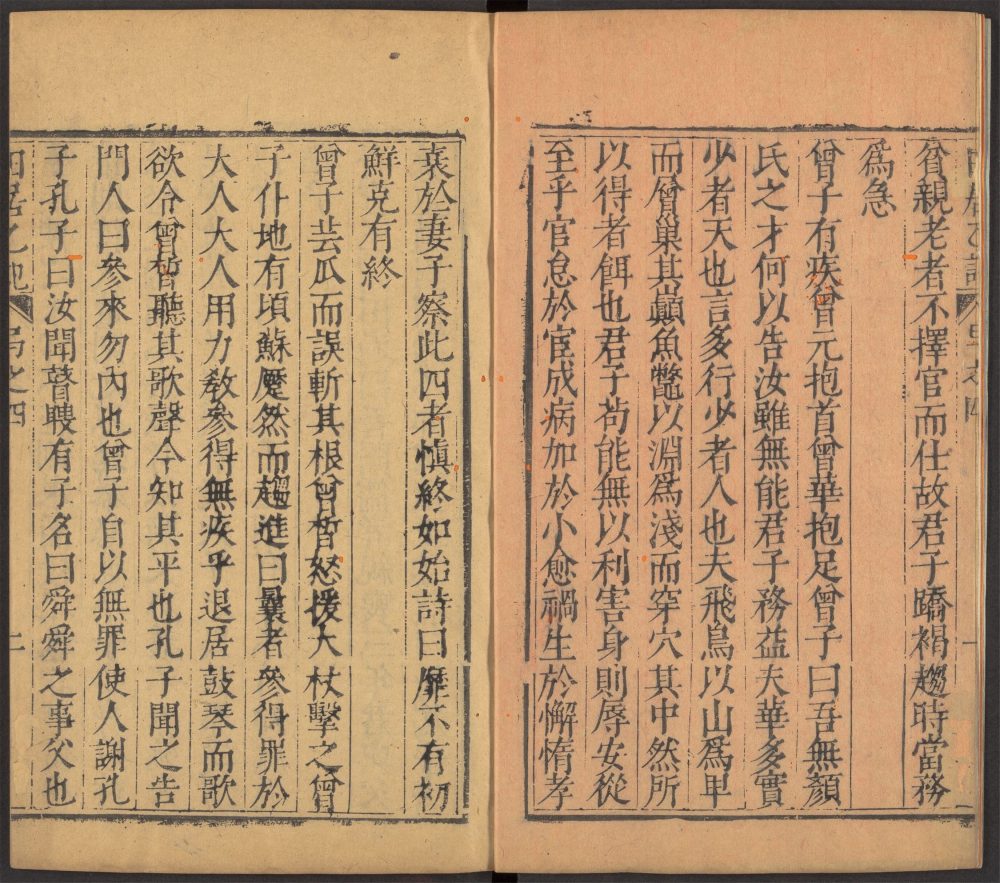 貧親老者不擇官而仕故君子蹻褐趨時當務
爲急
曾子有疾曾元抱首曾華抱足曾子曰吾無顏
氏之才何以告汝雖無能君子務益夫華多實
少者天也言多行少者人也夫飛鳥以山爲卑
而層巢其巔魚鼈以淵爲淺而穿穴其中然所
以得者餌也君子茍能無以利害身則辱安從
至乎官怠於宦成病加於小愈禍生於懈惰孝
衰於妻子察此四者慎終如始詩曰靡不有初
鮮克有終
曾子芸瓜而誤斬其根曾晳怒援大杖擊之曾
子仆地有頃蘇蹷然而趨進曰曩者參得罪於
大人大人用力敎參得無疾乎退居鼓琴而歌
欲令曾晳聽其歌聲令知其平也孔子聞之告
門人曰參來勿內也曾子自以無罪使人謝孔
子孔子曰汝聞瞽瞍有子名曰舜舜之事父也